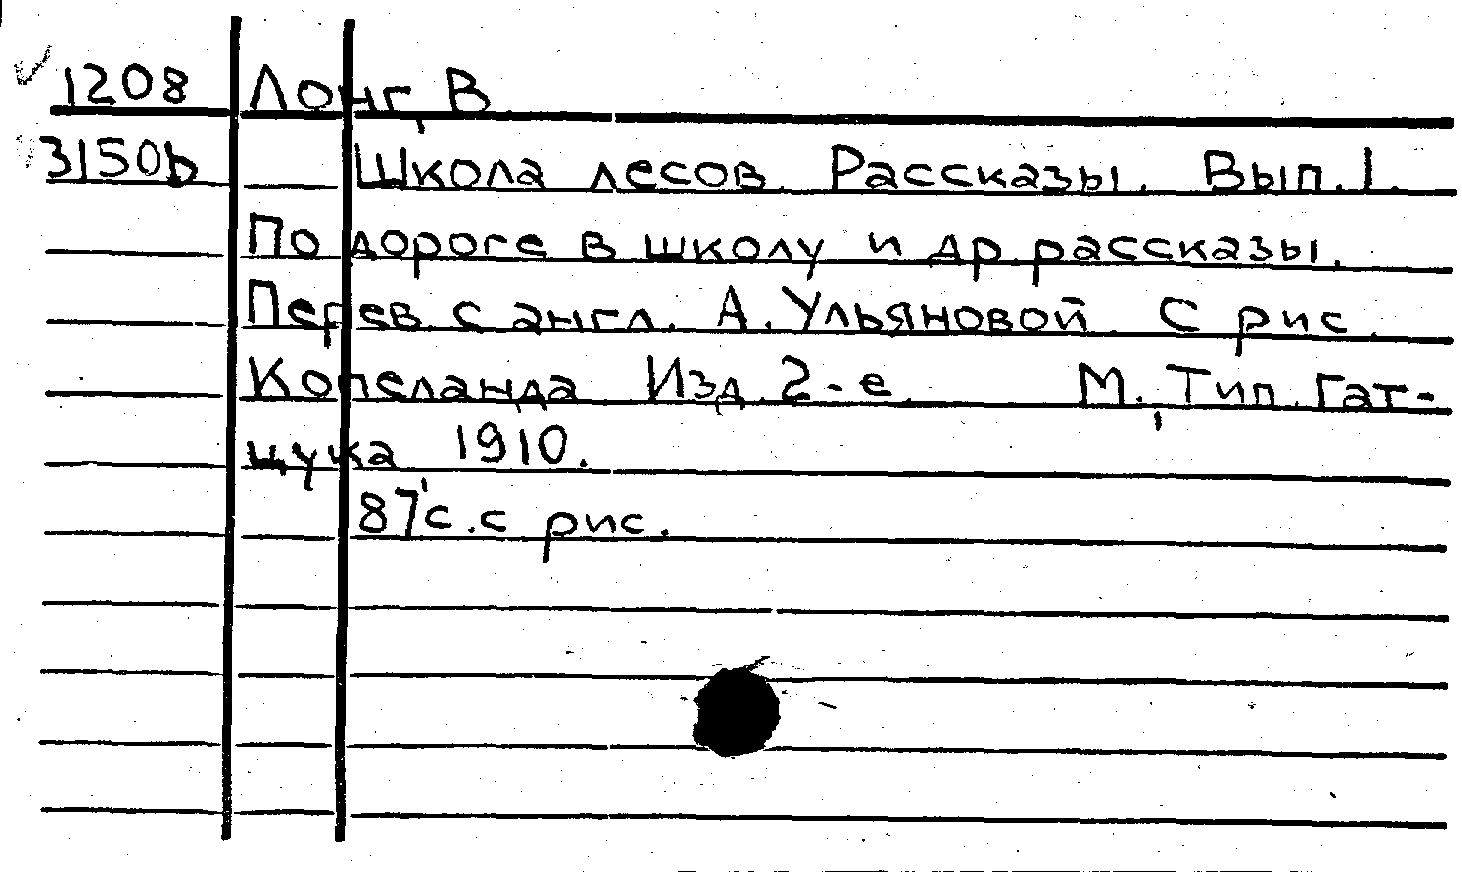 1208 Лонг, В.
3150b Школа лесов. Рассказы. Вып. 1.
По дороге в школу и др. рассказы.
Перев. с англ. А. Ульяновой. С рис.
Копеланда. Изд. 2-е. М., Тип. Гат-
цука 1910.
87 с. с рис.